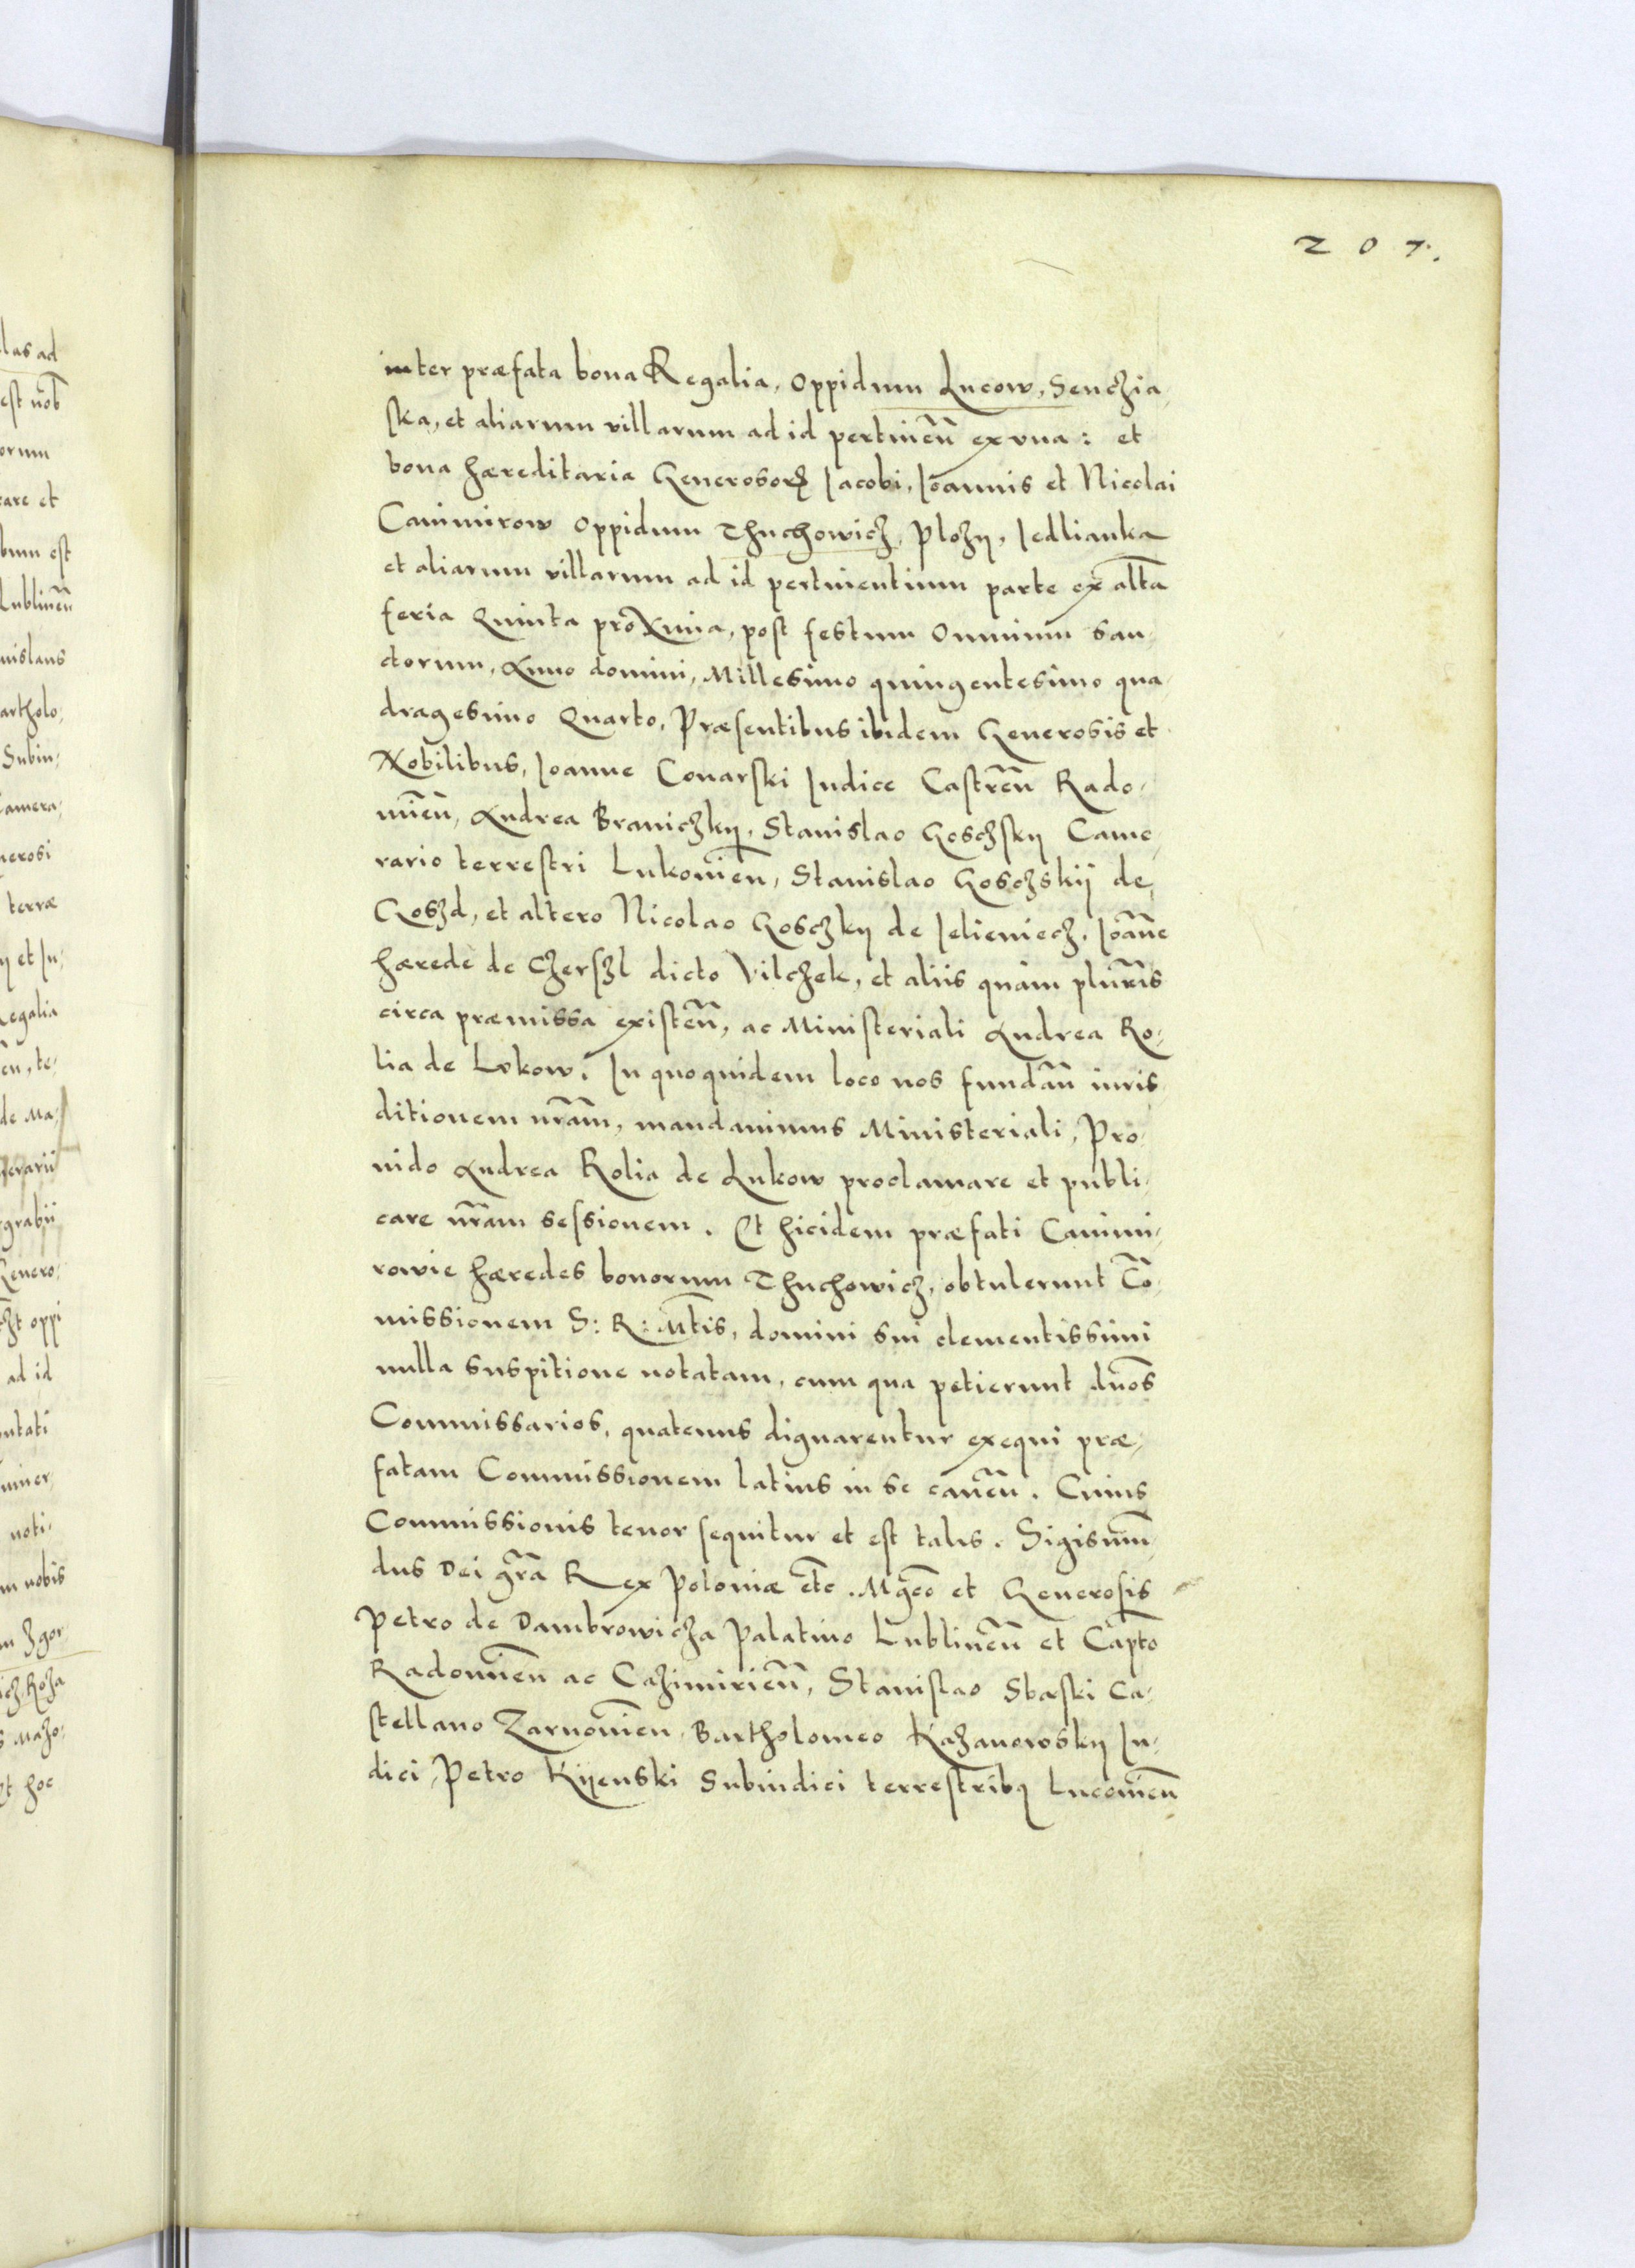 207.
inter præfata bona Regalia, Oppidum Lucow, Senchia,
ska, et aliarum villarum ad id pertineñ ex vna: et
bona hæreditaria Generosorꝝ Iacobi, Ioannis et Nicolai
Canimirow Oppidum Thuchowicz, Plozy, Iedlianka
et aliarum villarum ad id pertinentium parte ex alt̃a
feria Quinta proxima, post festum Omnium San,
ctorum, Anno domini, Millesimo quingentesimo qua,
dragesimo Quarto, Præsentibus ibidem Generosis et
Nobilibus, Ioanne Conarski Iudice Castreñ Rado,
mieñ, Andrea Braniczky, Stanislao Gosczsky Came,
rario terrestri Lukovieñ, Stanislao Gosczskÿ de,
Goszd, et altero Nicolao Gosczky de Ielieniecz, Ioãne
hærede de Cherszl dicto Vilczek, et aliis quàm plurĩs
circa præmissa existeñ, ac Ministeriali Andrea Ro,
lia de Lvkow. In quoquidem loco nos fundañ iuris
ditionem nr̃am, mandauimus Ministeriali, Pro,
uido Andrea Rolia de Lukow proclamare et publi,
care nr̃am sessionem. Et hicidem præfati Canimi,
rowie hæredes bonorum Thuchowicz, obtulerunt Cõ,
missionem S: R: Mt̃is, domini sui clementissimi
nulla suspitione notatam, cum qua petierunt dños
Commissarios, quatenus dignarentur exequi præ,
fatam Commissionem latius in se caueñ. Cuius
Commissionis tenor sequitur et est talis. Sigismũ,
dus Dei gr̃a Rex Poloniæ etc̃. Mgco̅ et Generosis
Petro de Dambrowicza Palatino Lublineñ et Capt̃o
Radomieñ ac Cazimirieñ, Stanislao Sbæski Ca,
stellano Zarnovieñ, Bartholomeo Kazanowsky Iu,
dici, Petro Kijenski Subiudici terrestribꝫ Lucovieñ